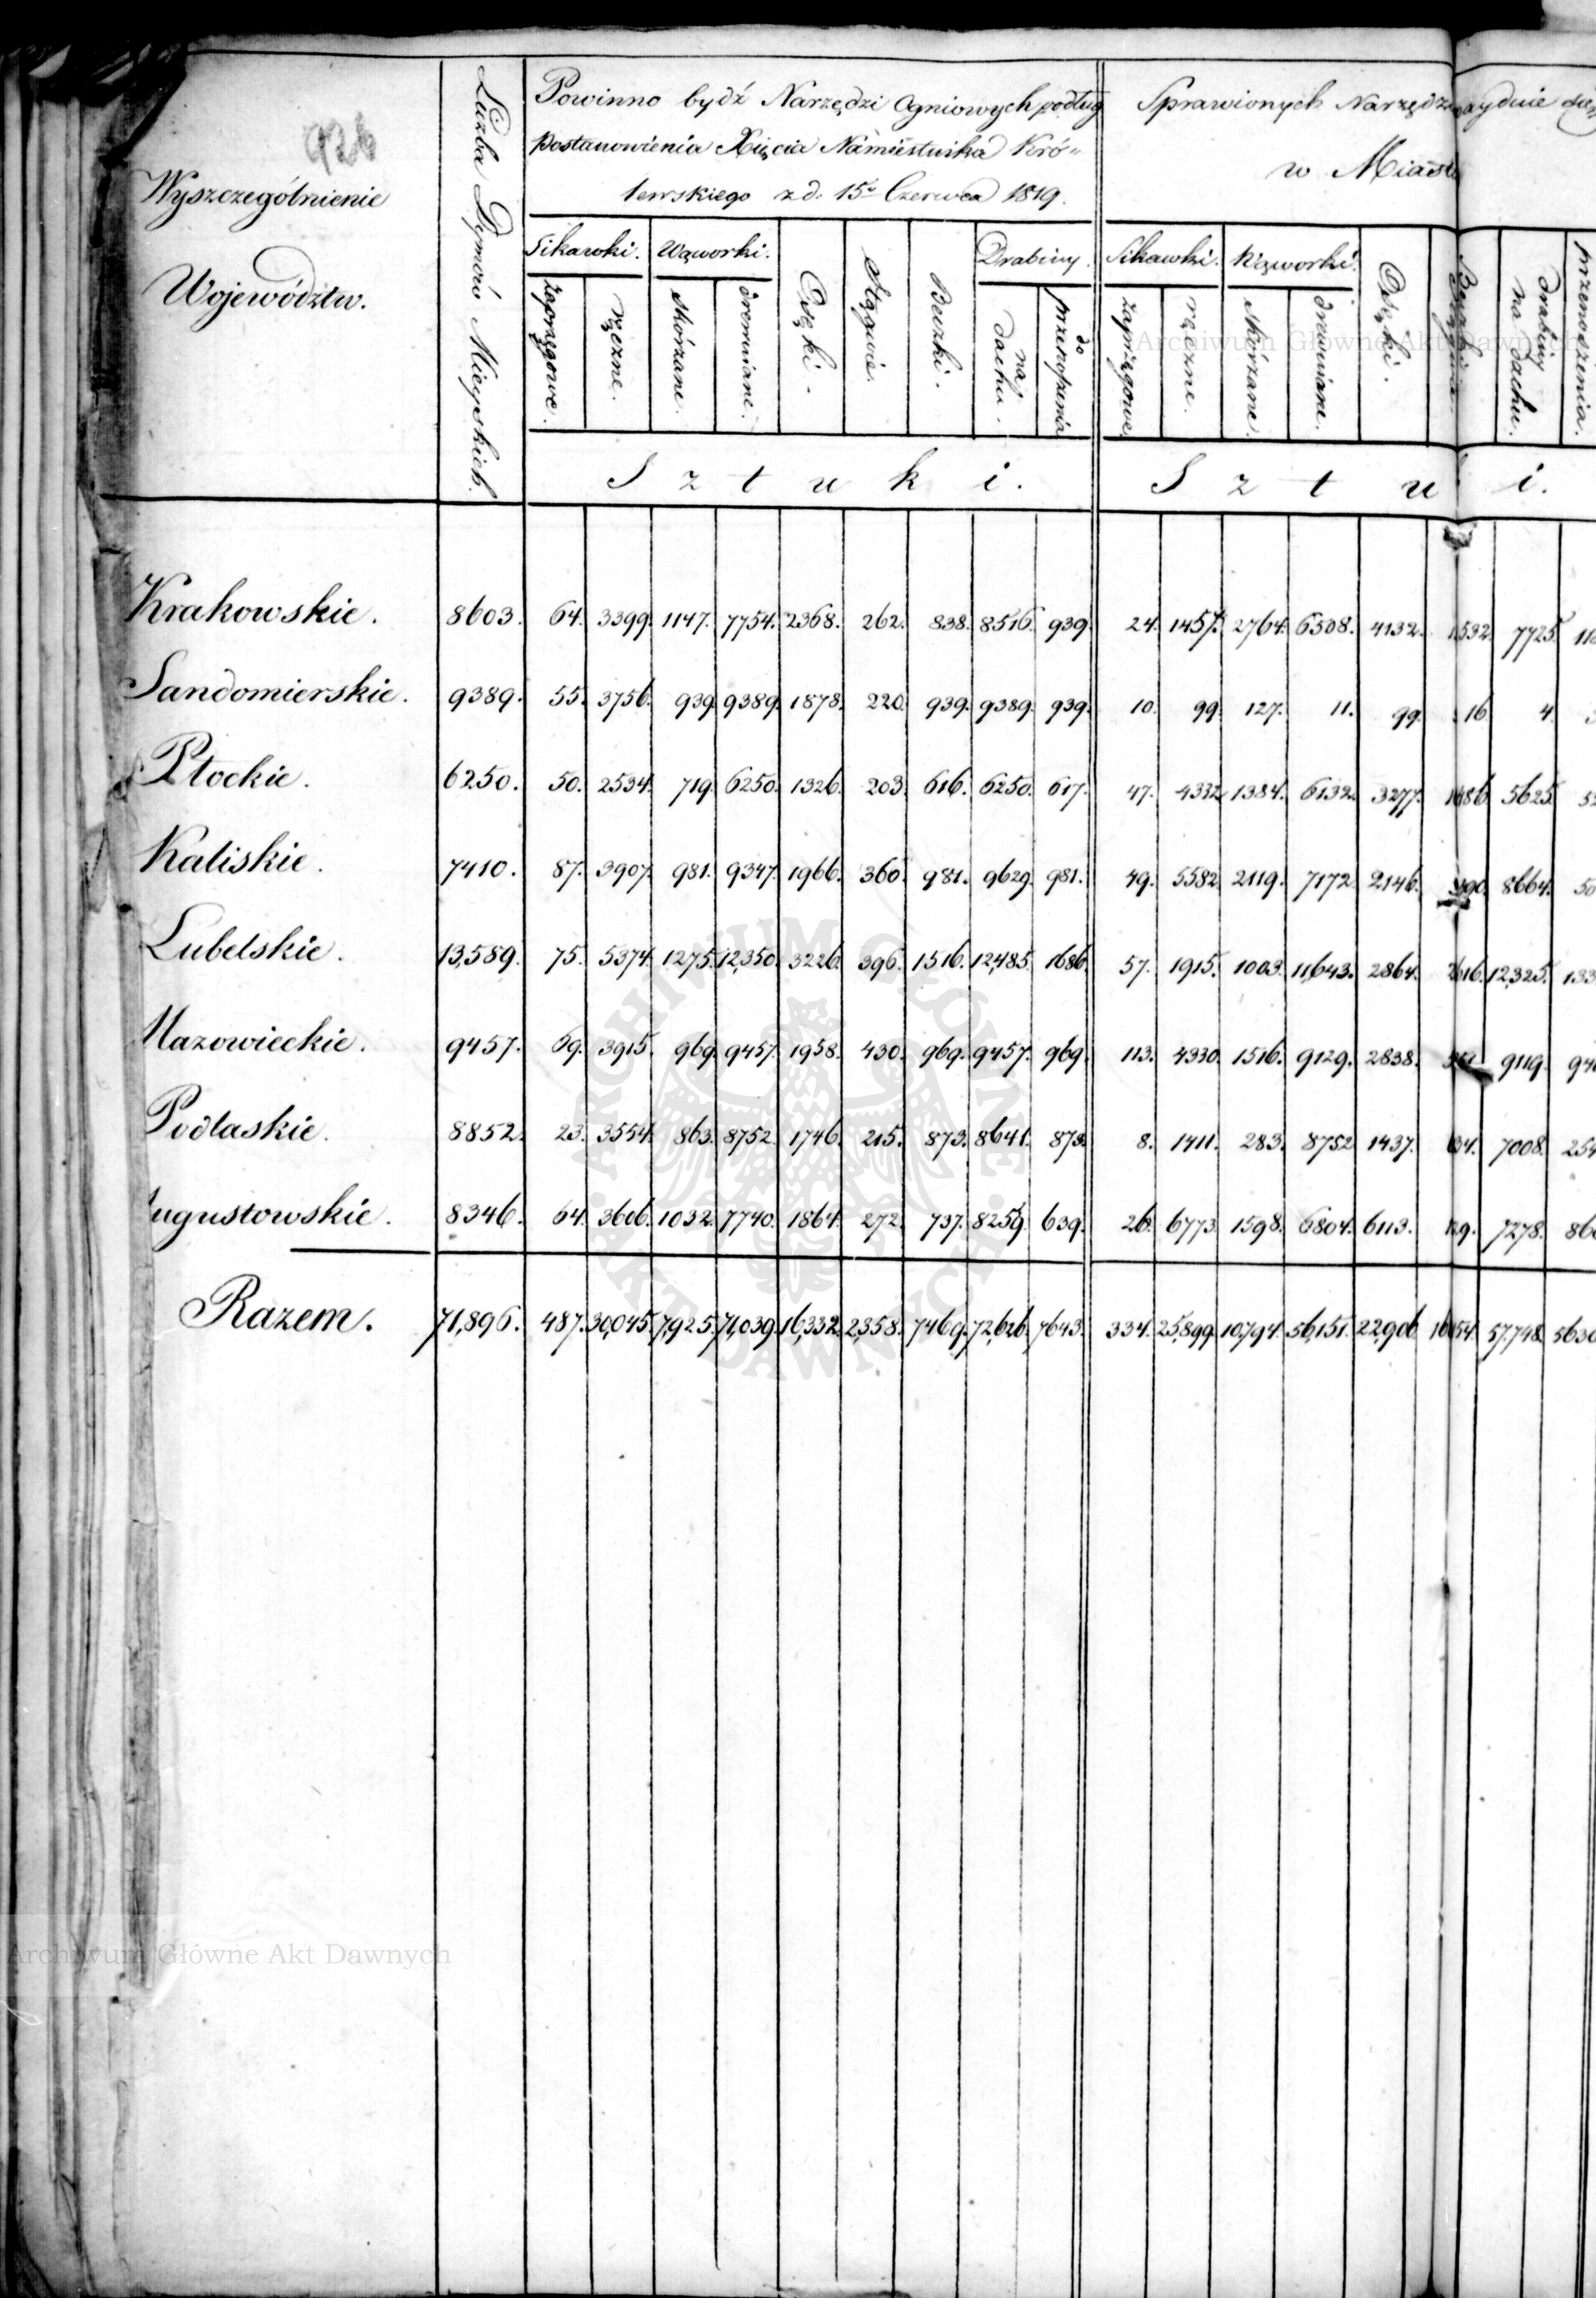 926
Wyszczególnienie
Województw.
Liczba Dymów Mieyskich.
Powinno bydź Narzędzi Ogniowych podług
postanowienia Xięcia Namiestnika Kró-
lewskiego z d. 15o Czerwca 1819.
Sprawionych Narzędzi znayduie się
w Miasta
Sikawki. Wąworki. Osęki. Stągwie. Beczki. Drabiny. Sikawki. Wąworki. Osęki.
zaprzęgowe. ręczne. skórzane. drewniane. na dachu. do przenoszenia zaprzęgowe. ręczne. skórzane. drewniane. Drabiny na dachu. przenoszenia.
S z t u k i. S z t u i.
Krakowskie. 8603. 64. 3399. 1147. 7754. 2368. 262. 838. 8516. 939. 24. 1457. 2764. 6508. 4132. 1532. 7725.
Sandomierskie. 9389. 55. 3756. 939. 9389. 1878. 220. 939. 9389. 939. 10. 99. 127. 11. 99. 16. 4.
Płockie. 6250. 50. 2534. 719. 6250. 1326. 203. 616. 6250. 617. 47. 4332. 1384. 6132. 3277. 5625.
Kaliskie. 7410. 87. 3907. 981. 9347. 1966. 360. 981. 9629. 981. 49. 5582. 2119. 7172. 2146. 8664. 50
Lubelskie. 13,589. 75. 5374. 1275. 12,350. 3226. 396. 1516. 12,485. 1686. 57. 1915. 1003. 11,643. 2864. 12,325. 133
Mazowieckie. 9457. 69. 3915. 969. 9457. 1958. 430. 969. 9457. 969. 113. 4330. 1516. 9129. 2838. 9119.
Podlaskie. 8852. 23. 3554. 863. 8752. 1746. 215. 873. 8641. 873. 8. 1411. 283. 8752 1437. 7008. 254
ugustowskie. 8346. 64. 3606. 1032. 7740. 1864. 272. 737. 8259. 639. 26. 6773 1598. 6804. 6113. 7278.
Razem. 71,896. 487. 30,045. 7,925. 71,039. 16,332. 2,358. 7469. 72,626. 7643. 334. 25,899. 10,794. 56,151. 22,906 57,748.
Archiwum Główne Akt Dawnych
ARCHIWUM GŁÓWNE AKT DAWNYCH
Archiwum Główne Akt Dawnych